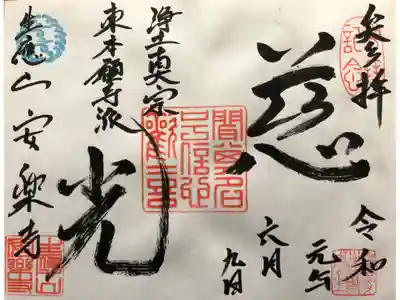 参拝
慈光
令和
元年
六月
九日
聞其名
号信心
歓喜
浄土真宗
東本願寺派
生應山安楽寺